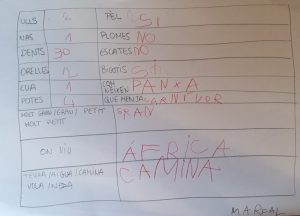 ULLS 2 PÈL SI
NAS 1 PLOMES NO
DENTS 30 ESCATES NO
ORELLES 2 BIGOTIS SI
CUA 1 COM NEIXEN PANXA
POTES 4 QUE MENJA CARNIVOR
MOLT GRAN/GRAN/PETIT
MOLT PETIT GRAN
ON VIU ÀFRICA
TERRA/AIGUA/CAMINA
VOLA/NEDA CAMINA
MAREAL